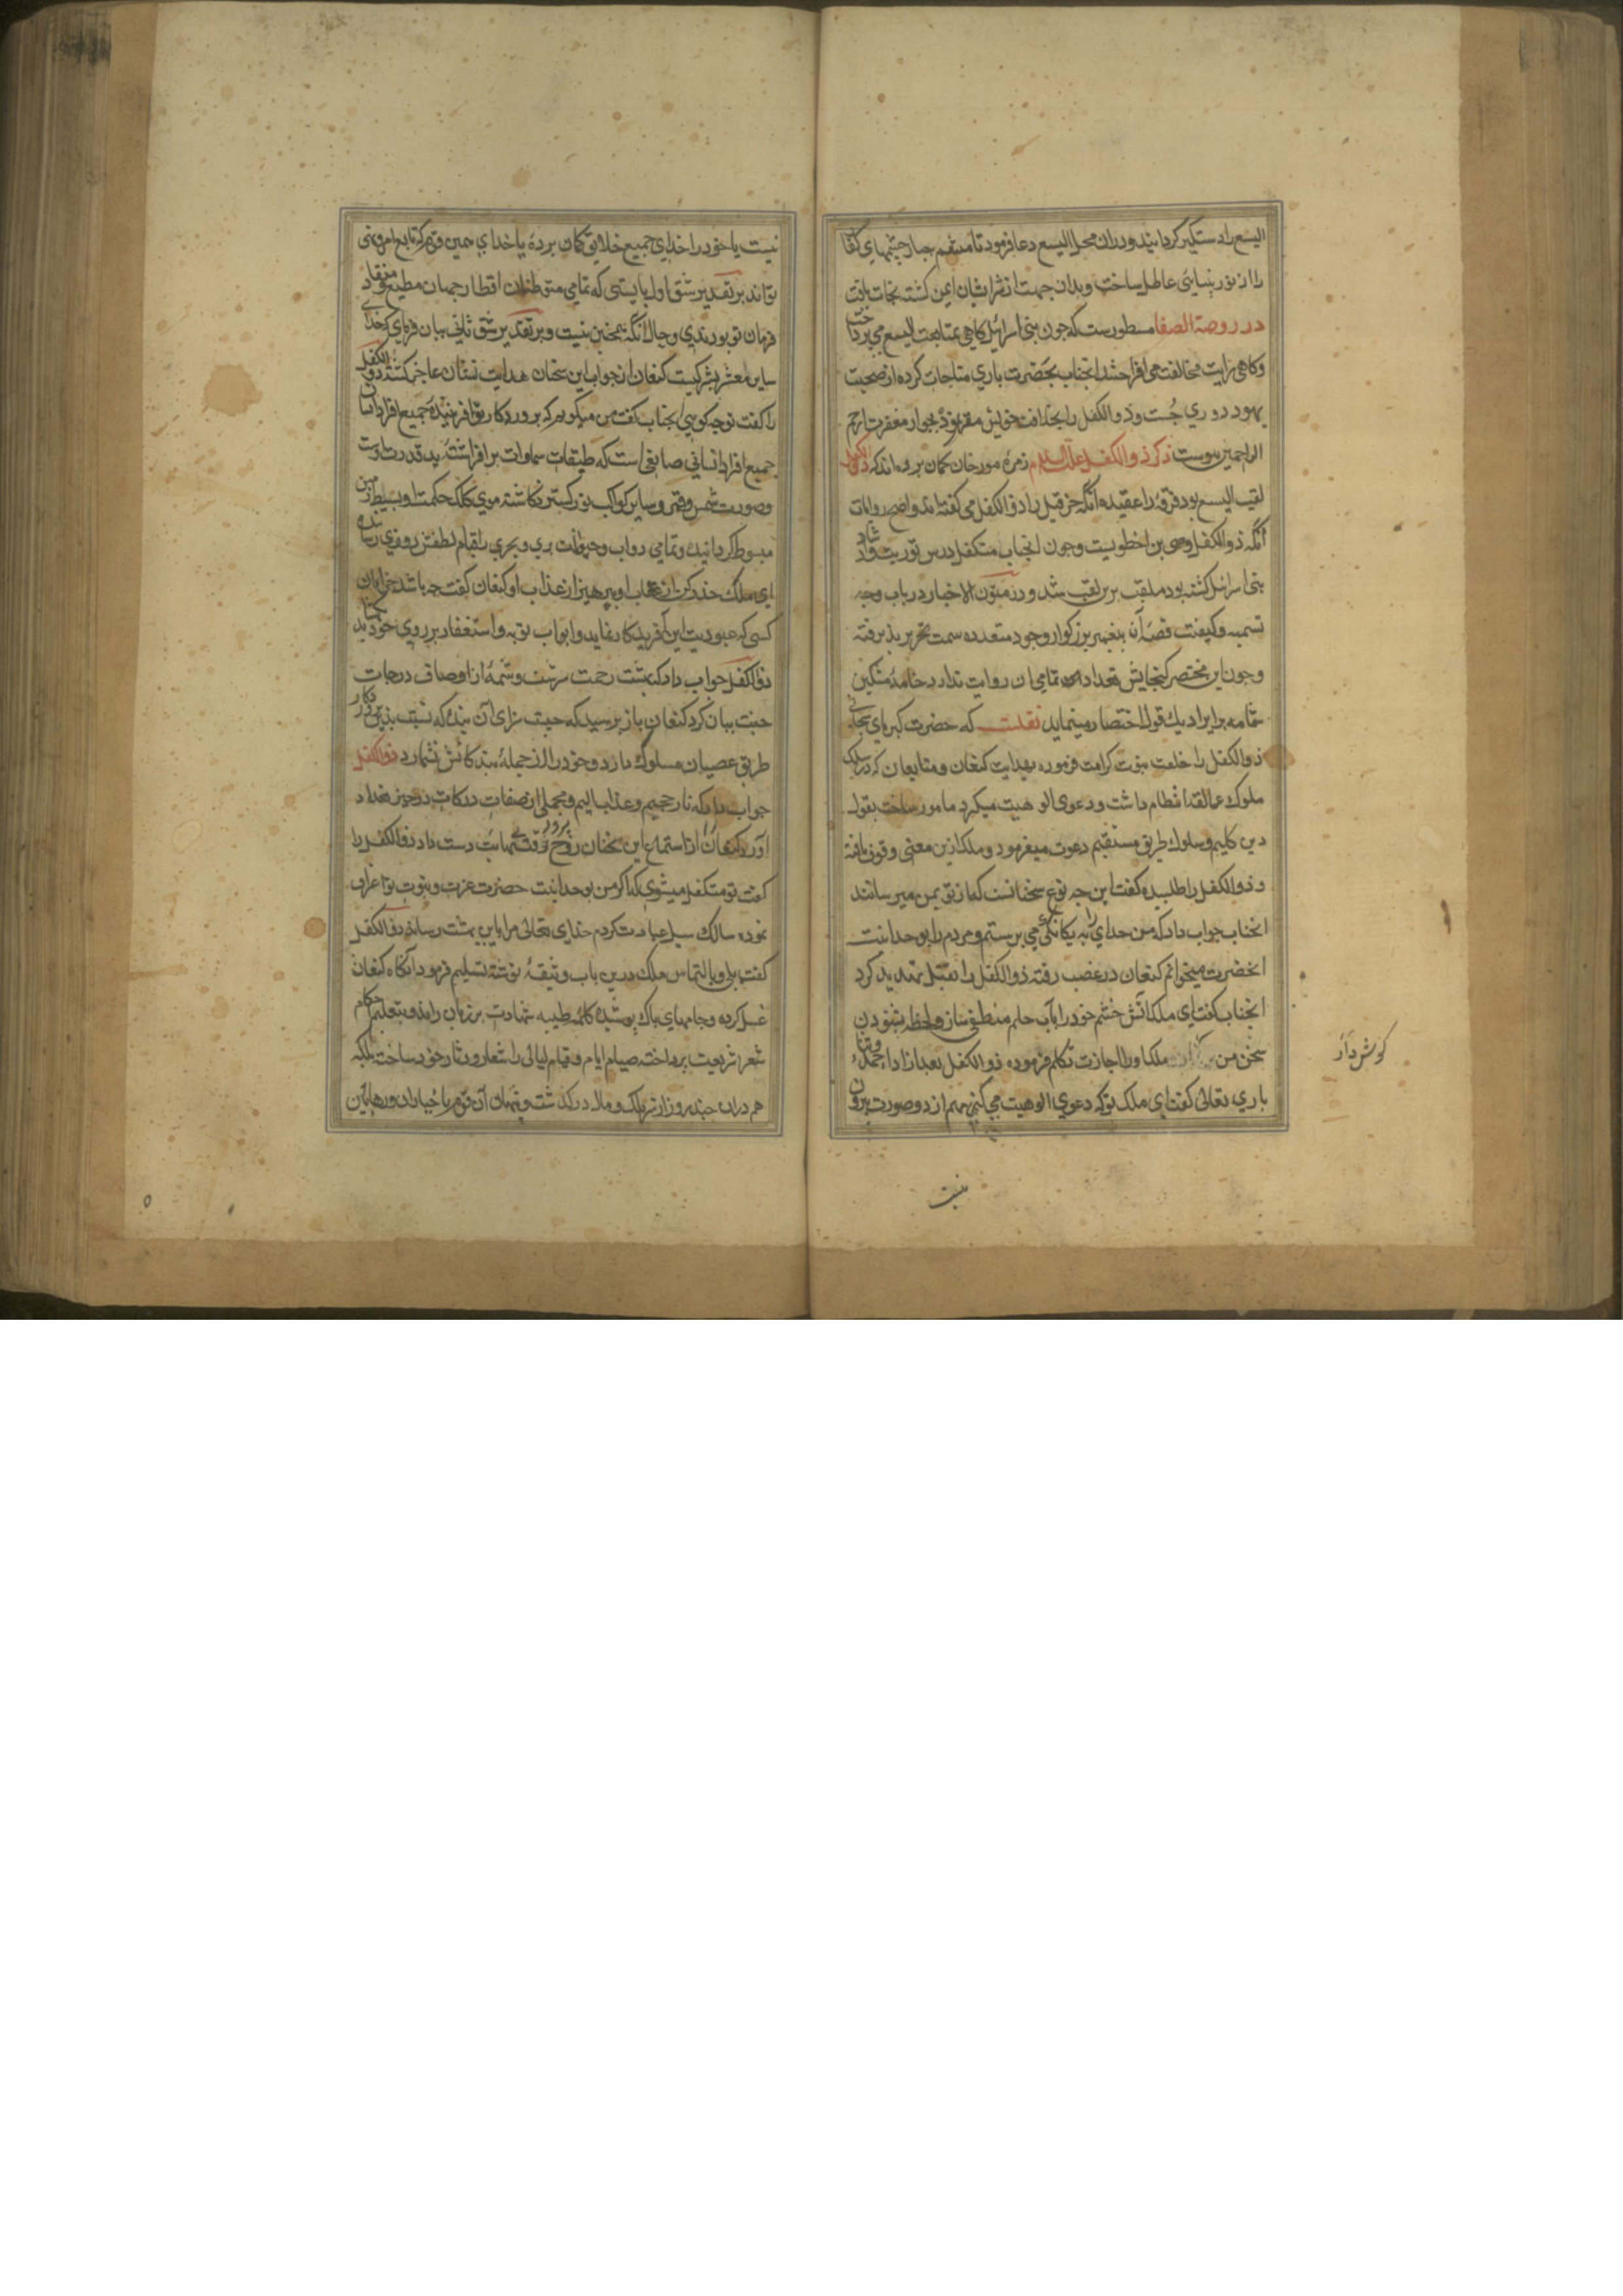 الیسع را دستکیر کردانیدند و دران محل الیسع دعا فرمود تا منتقم جبار چشمهای کفار
را از نور بینائی عاطل ساخت و بدان جهت از شر ایشان ایمن کشته نجات یافت
در روضة الصفا مسطورست که چون بنی اسرائیل کاهی بمتابعت الیسع می پرداخت
و کاهی رایت مخالفت می افراختند انجناب بحضرت باری مناجات کرده از صحبت
یهود دوری جست و ذو الکفل را بخلافت خویش مقرر نموده بجوار مغفرت ارحم
الراحمین پیوست ذکر ذو الکفل علیه السلام زمره مورخان کمان برده اند که ذو الکفل
لقب الیسع بود و فرقه را عقیده آنکه حزقیل را ذو الکفل می کفته اند و اصح روایات
آنکه ذو الکفل وصی بن اخطوبست و چون انجناب متکفل درس توریت و ارشاد
بنی اسرائیل کشته بود ملقب برین لقب شد و در متون الاخبار در باب وجه
تسمیه و کیفیت قصه آن پیغمبر بزرکوار وجوه متعدده سمت تحریر پذیرفته
و چون این مختصر کنجایش تعداد تمامی آن روایت ندارد خامه مشکین
شمامه برایراد یک قول اختصار مینماید نقلست که حضرت کبریای سبحانی
ذو الکفل را خلعت نبوت کرامت فرموده بهدایت کنعان و متابعان که در سلک
ملوک عمالقه انتظام داشت و دعوی الوهیت میکرد مامور ساخت بقول
دین کلیم و سلوک طریق مستقیم دعوت میفرمود و ملک ازین معنی وقوف یافته
و ذو الکفل را طلبیده کفت این چه نوع سخنانست که از تو بمن میرسانند
انجناب جواب داد که من خدای را به یکانکی می پرستم و مردم را بوحدانیت
انحضرت میخوانم کنعان در غضب رفته ذو الکفل را بقتل تهدید کرد
انجناب کفت ای ملک آتش خشم خود را بآب حلم منطفی ساز و لحظه بشنودن
سخن من ملک او را اجازت تکلم فرموده ذو الکفل بعد از اداء حمد و ثنای
باری تعالی کفت ای ملک تو که دعوی الوهیت می کنی مهم از دو صورت بیرون
کوش دار
نیست
نیست یا خود را خدای جمیع خلایق کمان برده یا خدای همین قوم که تابع امر و نهی
تواند بر تقدیر شق اول بایستی که تمامی متوطنان اقطار جهان مطیع و منقاد
فرمان تو بودندی و حال آنکه همچنین نیست و بر تقدیر شق ثانی بیان فرمای که خدای
سایر معشر بشر کیست کنعان از جواب این سخنان هدایت نشان عاجز کشته ذو الکفل
را کفت تو چه کوئی انجناب کفت من میکویم که پروردکار تو آفریننده جمیع افراد انسان
جمیع افراد انسانی صانعی است که طبقات سماوات بر افراشته ید قدرت اوست
و صورت شمس و قمر و سایر کواکب نور کستر نکاشته موی کلک حکمت او بسیط زمین
مبسوط کردانیده و تمامی دواب و حیوانات بری و بحری را قیام لطفش روزی رسانیده
ای ملک حذر کن از عقاب او و بپرهیز از عذاب او کنعان کفت چه باشد جزای آن
کسی که عبودیت این آفریدکار نماید و ابواب توبه و استغفار بر روی خود بکشاید
ذو الکفل جواب داد که بهشت رحمت سرشت و شمه از اوصاف درجات
جنت بیان کرد کنعان باز پرسید که چیست سزای آن بنده که نسبت بدین پروردکار
طریق عصیان مسلوک دارد و خود را از جمله بندکانش نشمارد ذو الکفل
جواب داد که نار جحیم و عذاب الیم و مجملی از صفات درکات دوزخ تعداد
آورد کنعان را از استماع این سخنان روح پرور رقت تمام دست داد ذو الکفل را
کفت تو متکفل میشوی که اکر من بوحدانیت حضرت عزت و نبوت تو اعتراف
نموده سالک سبیل عبادت کردم خدای تعالی مرا باین بهشت رساند ذو الکفل
کفت بلی و بالتماس ملک درین باب وثیقه نوشته تسلیم فرمود آنکاه کنعان
غسل کرده و جامهای پاک پوشیده کلمه طیبه شهادت بر زبان رانده و بتعلیم احکام
شعر شریعت پرداخته صیام ایام و قیام لیالی را شعار و دثار خود ساخت بلکه
هم دران چند روز از سر ملک و مال در کذشت و پنهان آن قوم